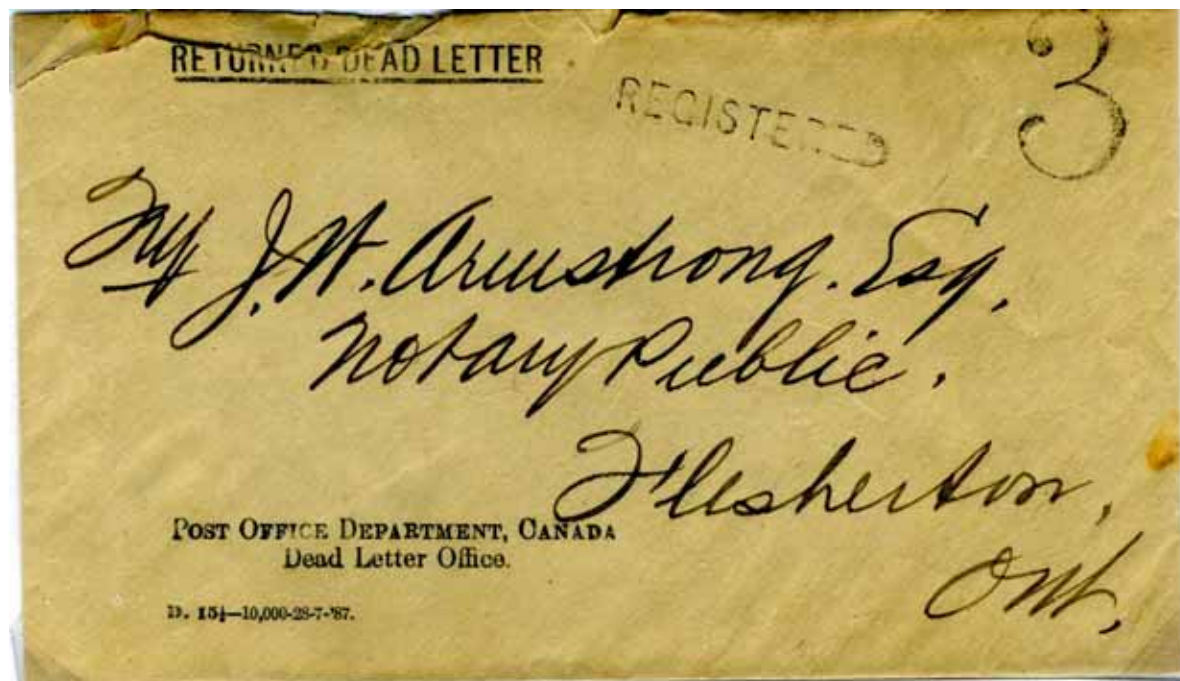 RETURNED DEAD LETTER
REGISTERED
3
J.W. Armstrong. Esq.
Notary Public.
Flesherton,
Ont,
POST OFFICE DEPARTMENT, CANADA
Dead Letter Office.
D. 15½—10,000-28-7-'87.